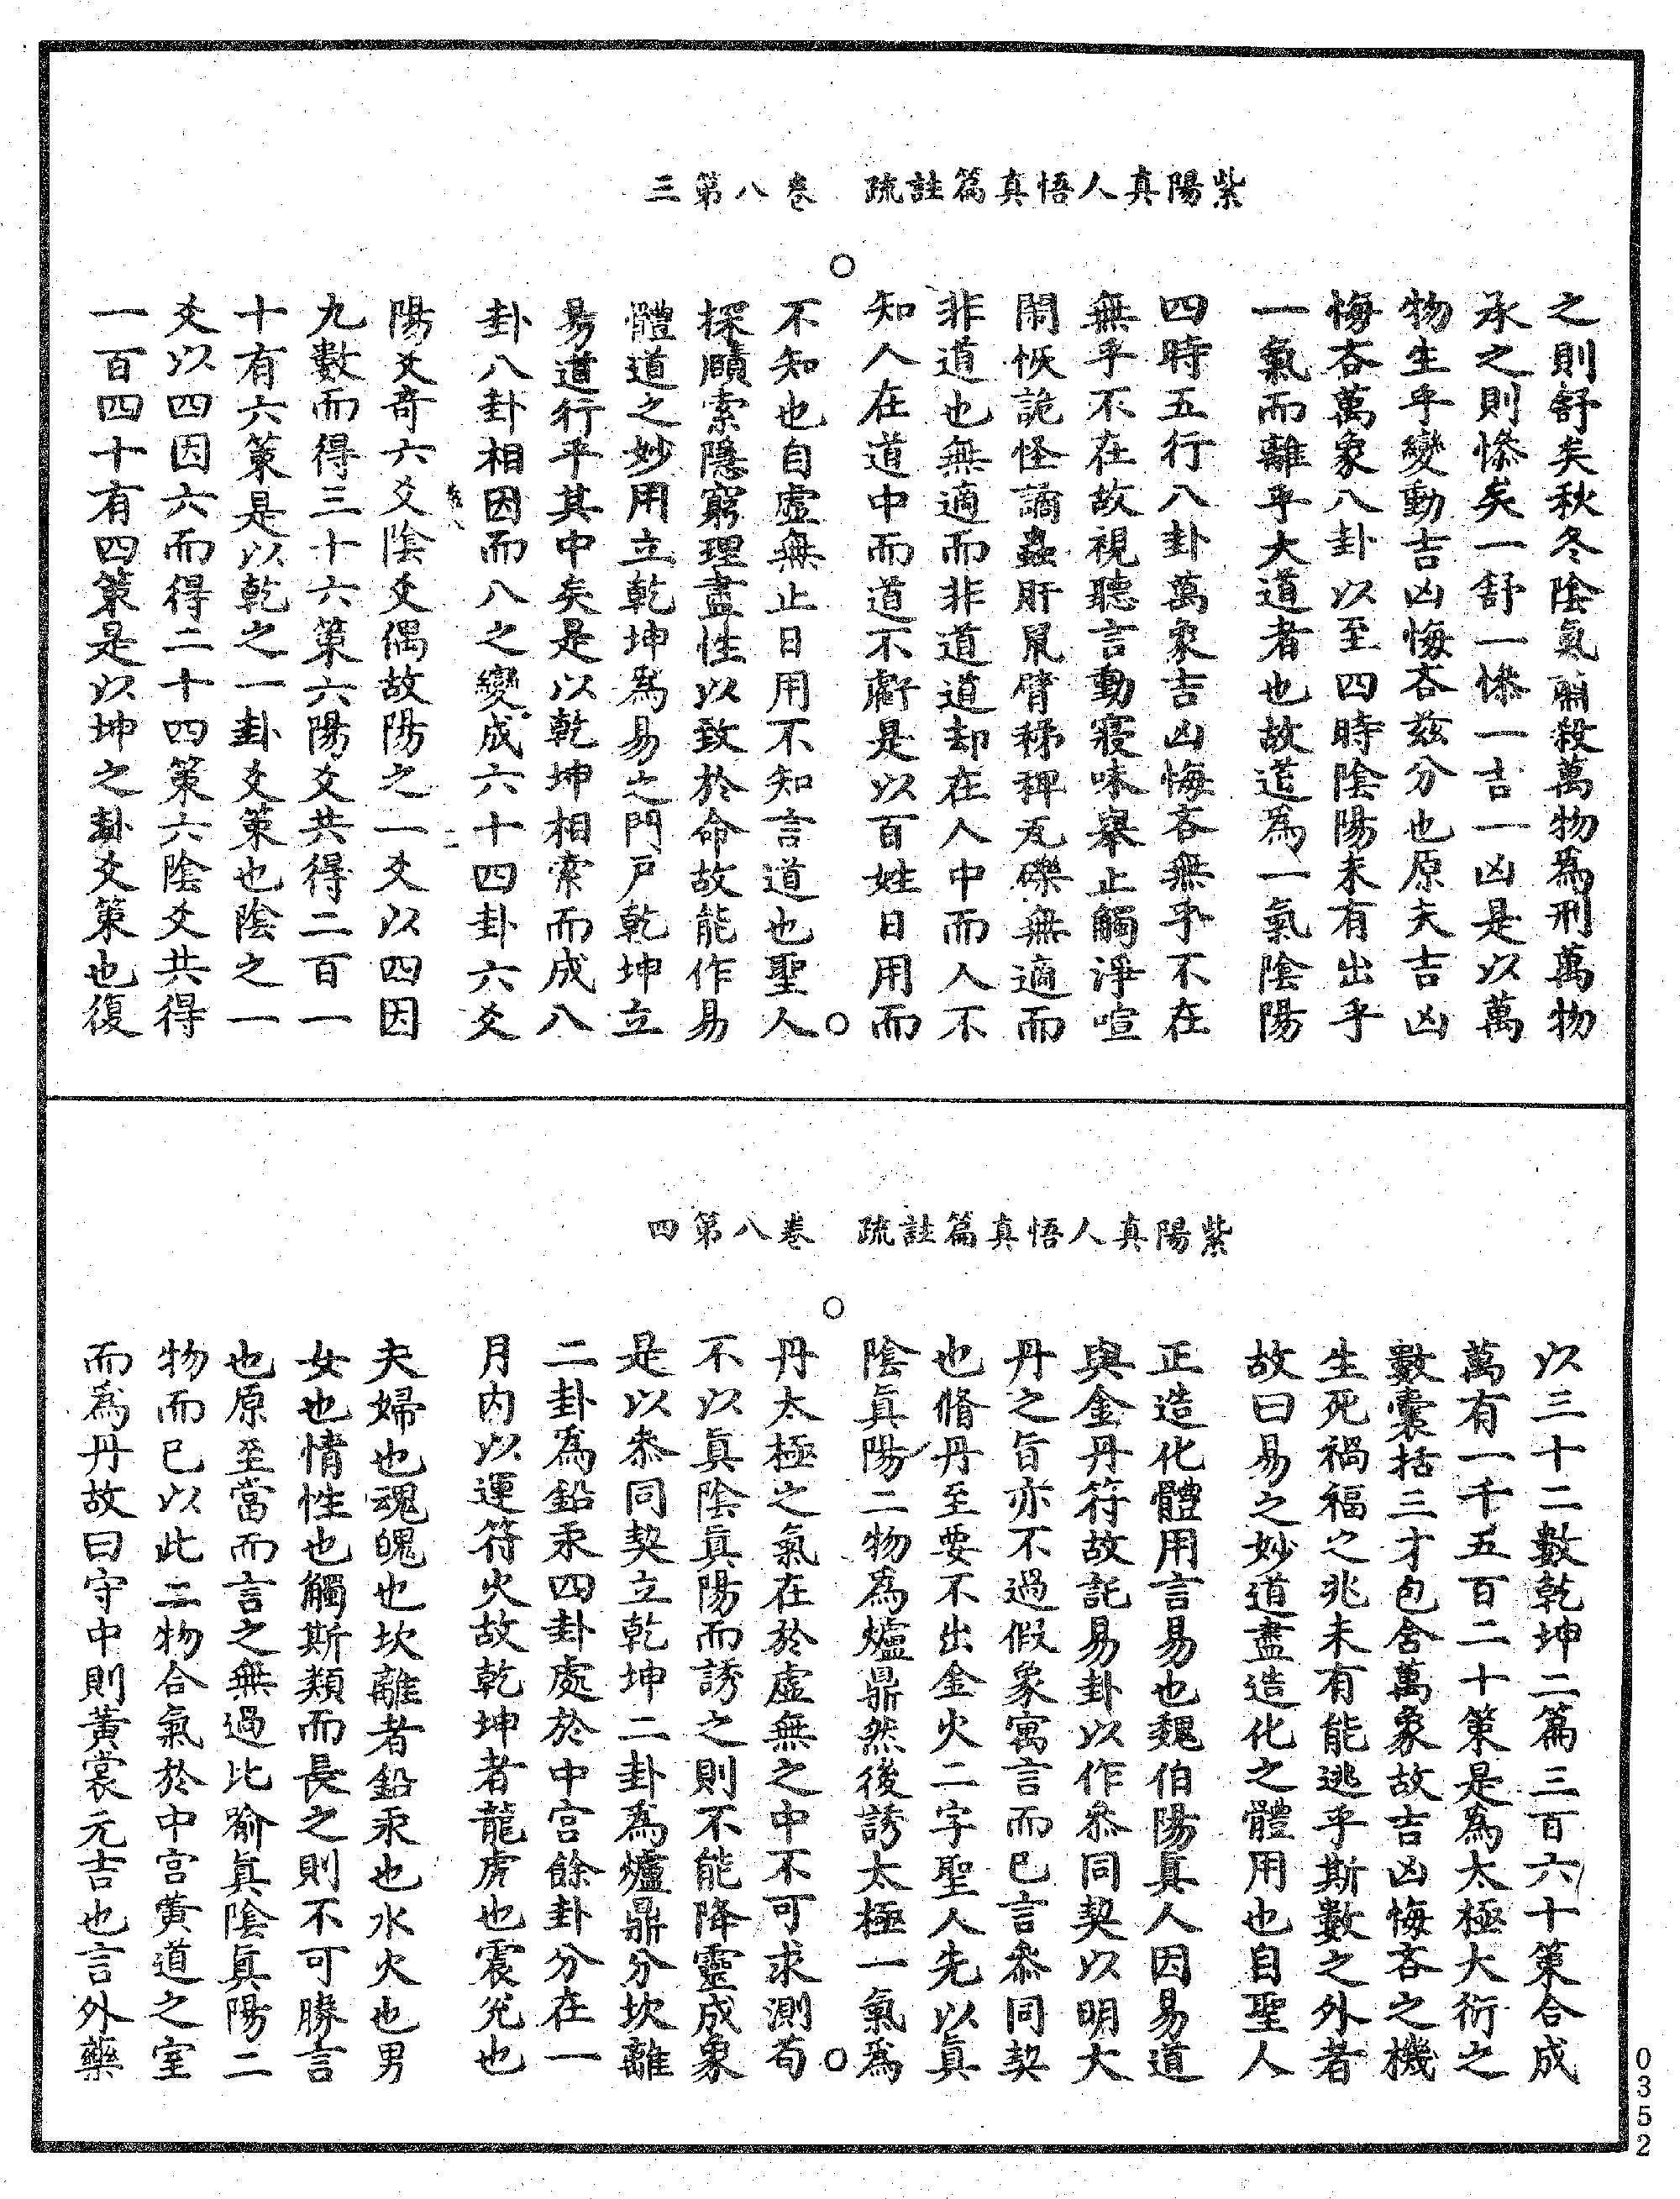 紫陽真人悟真篇註疏　卷八第三
之則舒矣秋冬陰氣肅殺萬物爲刑萬物
承之則慘矣一舒一慘一吉一凶是以萬
物生乎變動吉凶悔吝兹分也原夫吉凶
悔吝萬象八卦以至四時陰陽未有出乎
一氣而離乎大道者也故道爲一氣陰陽
四時五行八卦萬象吉凶悔吝無乎不在
無乎不在故視聽言動寢味舉止觸淨喧
閙恢詭怪譎蟲肝鼠臂稊稗瓦礫無適而
非道也無適而非道道却在人中而人不
知人在道中而道不虧是以百姓日用而
不知也自虛無止日用不知言道也聖人
探賾索隱窮理盡性以致於命故能作易
體道之妙用立乾坤爲易之門戸乾坤立
易道行乎其中矣是以乾坤相索而成八
卦八卦相因而八之變成六十四卦六爻
陽爻奇六爻陰爻偶故陽之一爻以四因
九數而得三十六策六陽爻共得二百一
十有六策是以乾之一卦爻策也陰之一
爻以四因六而得二十四策六陰爻共得
一百四十有四策是以坤之卦爻策也復
紫陽真人悟真篇註疏　卷八第四
以三十二數乾坤二篇三百六十策合成
萬有一千五百二十策是爲太極大衍之
數囊括三才包含萬象故吉凶悔吝之機
生死禍福之兆未有能逃乎斯數之外者
故曰易之妙道盡造化之體用也自聖人
正造化體用言易也魏伯陽真人因易道
與金丹符故託易卦以作叅同契以明大
丹之旨亦不過假象寓言而已言叅同契
也脩丹至要不出金火二字聖人先以真
陰真陽二物爲爐鼎然後誘太極一氣爲
丹太極之氣在於虛無之中不可求測苟
不以真陰真陽而誘之則不能降靈成象
是以叅同契立乾坤二卦爲爐鼎分坎離
二卦爲鉛汞四卦處於中宮餘卦分在一
月内以運符火故乾坤者龍虎也震兊也
夫婦也魂魄也坎離者鉛汞也水火也男
女也情性也觸斯類而長之則不可勝言
也原至當而言之無過比喻真陰真陽二
物而已以此二物合氣於中宮黄道之室
而爲丹故曰守中則黄裳元吉也言外藥
0352